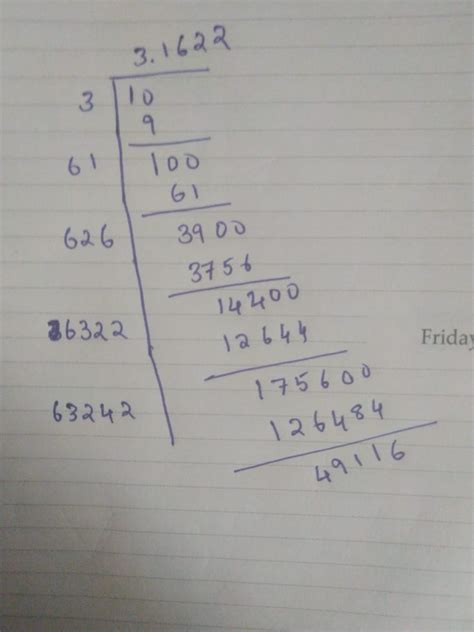 3.1622
3 10
9
61 100
61
626 3900
3756
14400
6322 12644
Friday
175600
63242 126484
49116